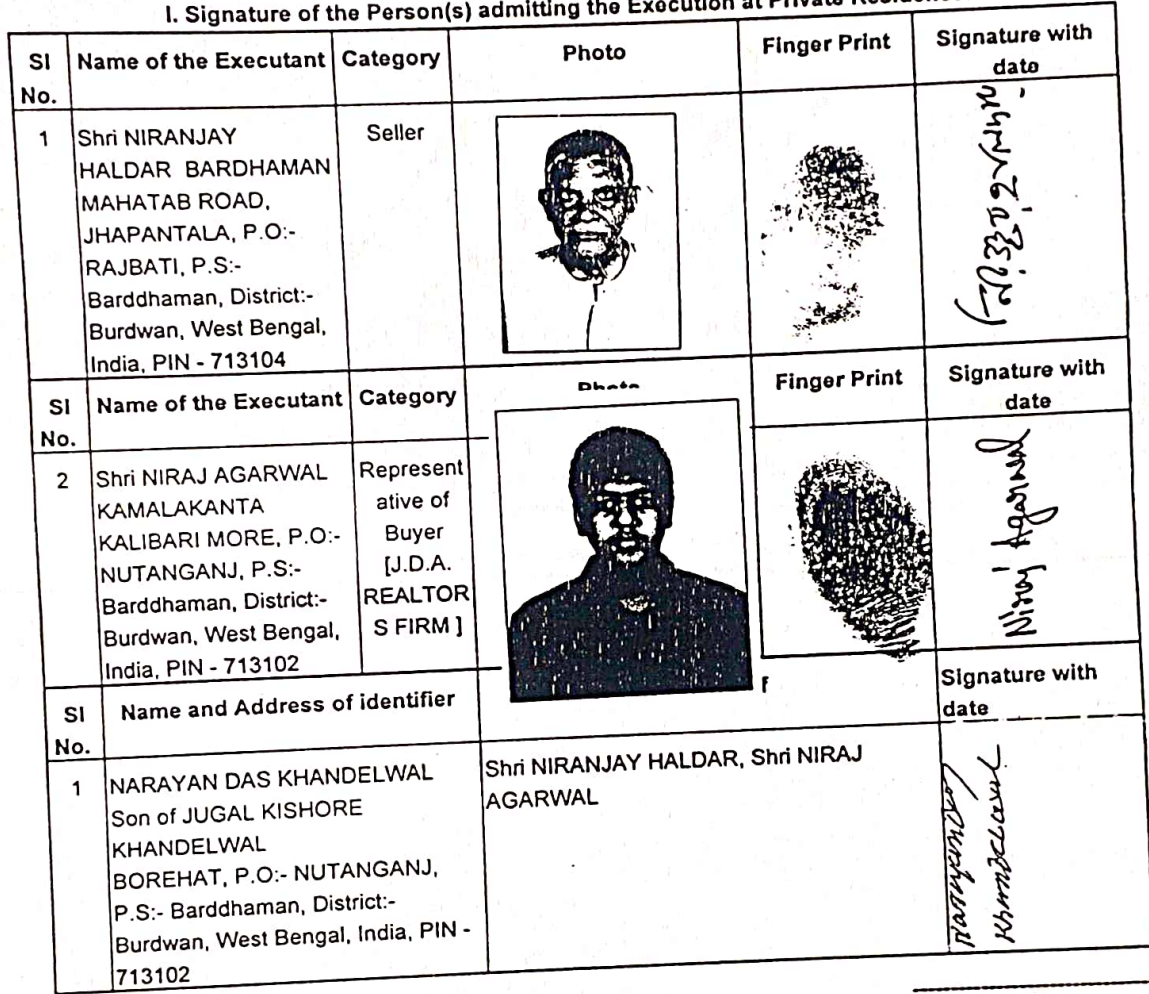 I. Signature of the Person(s) admitting the Execution at Private Residence
Sl No. Name of the Executant Category Photo Finger Print Signature with date
1
Shri NIRANJAY
HALDAR BARDHAMAN
MAHATAB ROAD,
JHAPANTALA, P.O:-
RAJBATI, P.S:-
Barddhaman, District:-
Burdwan, West Bengal,
India, PIN - 713104
Seller
Sl No. Name of the Executant Category Photo Finger Print Signature with date
2
Shri NIRAJ AGARWAL
KAMALAKANTA
KALIBARI MORE, P.O:-
NUTANGANJ, P.S:-
Barddhaman, District:-
Burdwan, West Bengal,
India, PIN - 713102
Represent
ative of
Buyer
[J.D.A.
REALTOR
S FIRM ]
Niraj Agarwal
Sl No. Name and Address of identifier f Signature with date
1
NARAYAN DAS KHANDELWAL
Son of JUGAL KISHORE
KHANDELWAL
BOREHAT, P.O:- NUTANGANJ,
P.S:- Barddhaman, District:-
Burdwan, West Bengal, India, PIN -
713102
Shri NIRANJAY HALDAR, Shri NIRAJ
AGARWAL
Khandelwal